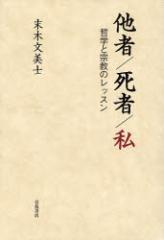 他者/死者/私
哲学と宗教のレッスン
末木文美士
岩波書店